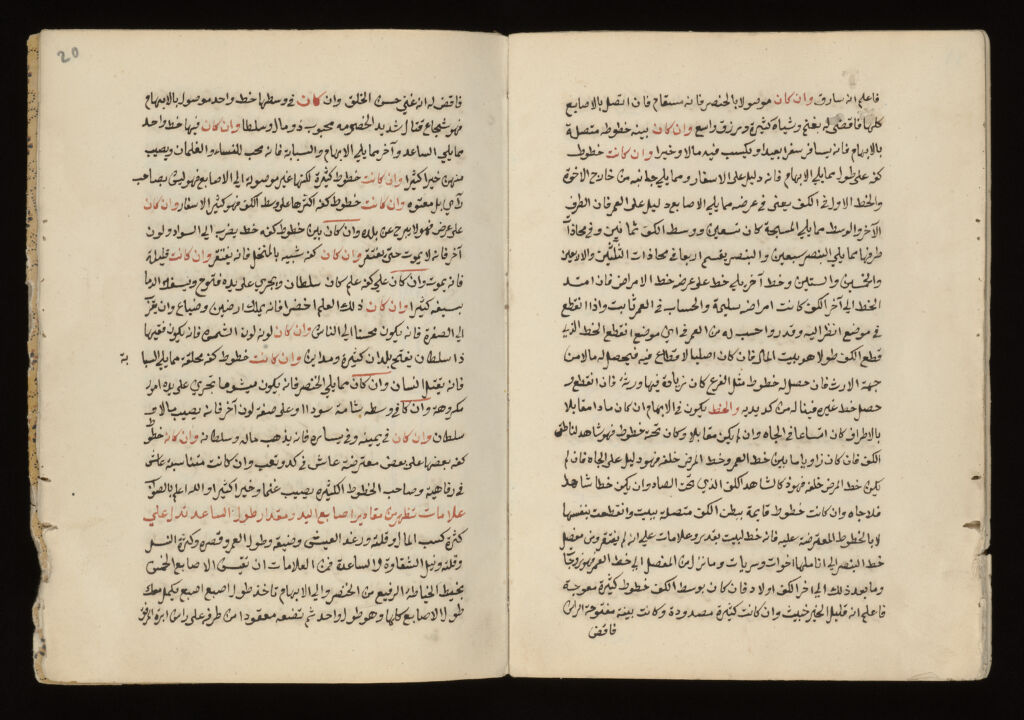 فاعلم انه سارق وان كان موصولا بالخنصر فانه سقام فان اتصل بالاصابع
كلها فاقضى له بغنى وشياه كثيرة ورزق واسع وان كان بينه خطوط متصلة
بالابهام فانه يسافر سفرا بعيدا ويكسب فيه مالا وخيرا وان كانت خطوط
كفه على طول مما يلي الابهام فانه دليل على الاسفار ومما يلي جانبه من خارج الاخوة
والخط الاول في الكف يعنى في عرضه مما يلي الاصابع دليل على العمر فان الطرف
الآخر والوسط مما يلي المسبحة كان تسعين ووسط الكف ثمانين وفي محاذاة
طرفها مما يلي البنصر سبعين والبنصر يقسم اربعا في محاذات الثلثين والاربعين
والخمسين والستين وخط آخر يلي خط على عرضه خط الامراض فان امتد
الخط الى آخر الكف كانت امراضه سليمة والحساب في العمر ثابت واذا انقطع
في موضع انظر اليه وقدر واحسب له من العمر في اي موضع انقطع الخط الذي
قطع الكف طولا هو بيت المال فان كان اصليا لا قطاع فيه فيحصل له مالا من
جهة الارث فان حصل له خطوط مثل الفرع كان زيادة فيها ورثه فان انقطع او
حصل خط غيره فيناله من كد يديه والخط يكون في الابهام ان كان مادا مقابلا
بالاطراف كان اتساعا في الجاه وان لم يكن مقابلا وكان تحته خطوط فهو شاهد لناطق
الكف فان كان زاويا ما بين خط العمر وخط المرض خلفه فهو دليل على الجاه فان لم
يكن خط المرض خلفه فهو كالشاهد الكف الذي تحت وان يكن خطا شاهدا
فلا جاه وان كانت خطوط قايمة ببطن الكف متصلة ببيت وانقطعت بنفسها
لا بالخطوط المعترضة عليه فانه خط لبيت بقدر وعلامات على انه لم يفتقر ومن مفصل
خط البنصر الى اناملها اخوات وسريات وما نزل من المفصل الى خط العمر فهو زوجاة
وما بعد ذلك الى اخر الكف اولاد فان كان بوسط الكف خطوط كثيرة معوجة
فاعلم انه قليل الخير خبيث وان كانت كثيرة مصدودة وكانت بينه مفتوحة الراس
فاقض
20
فاقض له انه غني حسن الخلق وان كان في وسطها خط واحد موصول بالابهام
فهو شجاع قتال شديد الخصومه محبوب ذو مال وسلطان وان كان فيها خط واحد
مما يلي الساعد وآخر مما يلي الابهام والسبابة فانه محب للنساء والغلمان ويصيب
منهن خيرا كثيرا وان كانت خطوط كثيرة لكنها غير موصولة الى الاصابع فهو ليس بصاحب
رأي بل معتوه وان كانت خطوط كفه اكثرها على وسط الكف فهو كثير الاسفار وان كان
على عرض فهو لا يبرح عن بلده وان كان بين خطوط كفه خط يضرب الى السواد ولون
آخر فانه لا يموت حتى يفتقر وان كان كفه شبيه بالمنخل فانه يفتقر وان كانت قليلة
فانه يموت وان كان على كفه علم كان سلطان ويجري على يده فتوح ويسفك الدما
بسيفه كثيرا وان كان ذلك العلم اخضر فانه يملك ارضين وضياع وان
الى الصفرة فانه يكون محسنا الى الناس وان كان لونه لون الشمس فانه يكون فقيها
ذا سلطان يفتح بلدان كثيرة ومداين وان كانت خطوط كفه محلقة مما يلي السبا
بة
فانه يقتل انسان وان كان مما يلي الخنصر فانه يكون ميشوما تجري على يده امور
مكروهة وان كان في وسطه شامة سودا او على صفة لون آخر فانه يصيب مالا و
سلطان وان كان في يمينه وفي يساره فانه يذهب ماله وسلطانه وان كانت خطوط
كفه بعضها على بعض معترضة عاش في كد وتعب وان كانت متناسبة عاش
في رفاهية وصاحب الخطوط الكثيره يصيب غنما وخيرا كثيرا والله اعلم بالصواب
علامات تظهر من مقادير اصابع اليد ومقدار طول الساعد تدل على
كثرة كسب المال او قلته ورغد العيش وضيقه وطول العمر وقصره وكثرة النسل
وقلته ونيل الشقاوة والسعادة فمن العلامات ان تقيس الاصابع الخمس
بخيط الخياطة الرفيع من الخنصر والى الابهام تاخذ طول اصبع اصبع يكمل معك
طول الاصابع كلها وهو طول واحد ثم تضعه معقودا من طرفه على راس ابرة المرفق